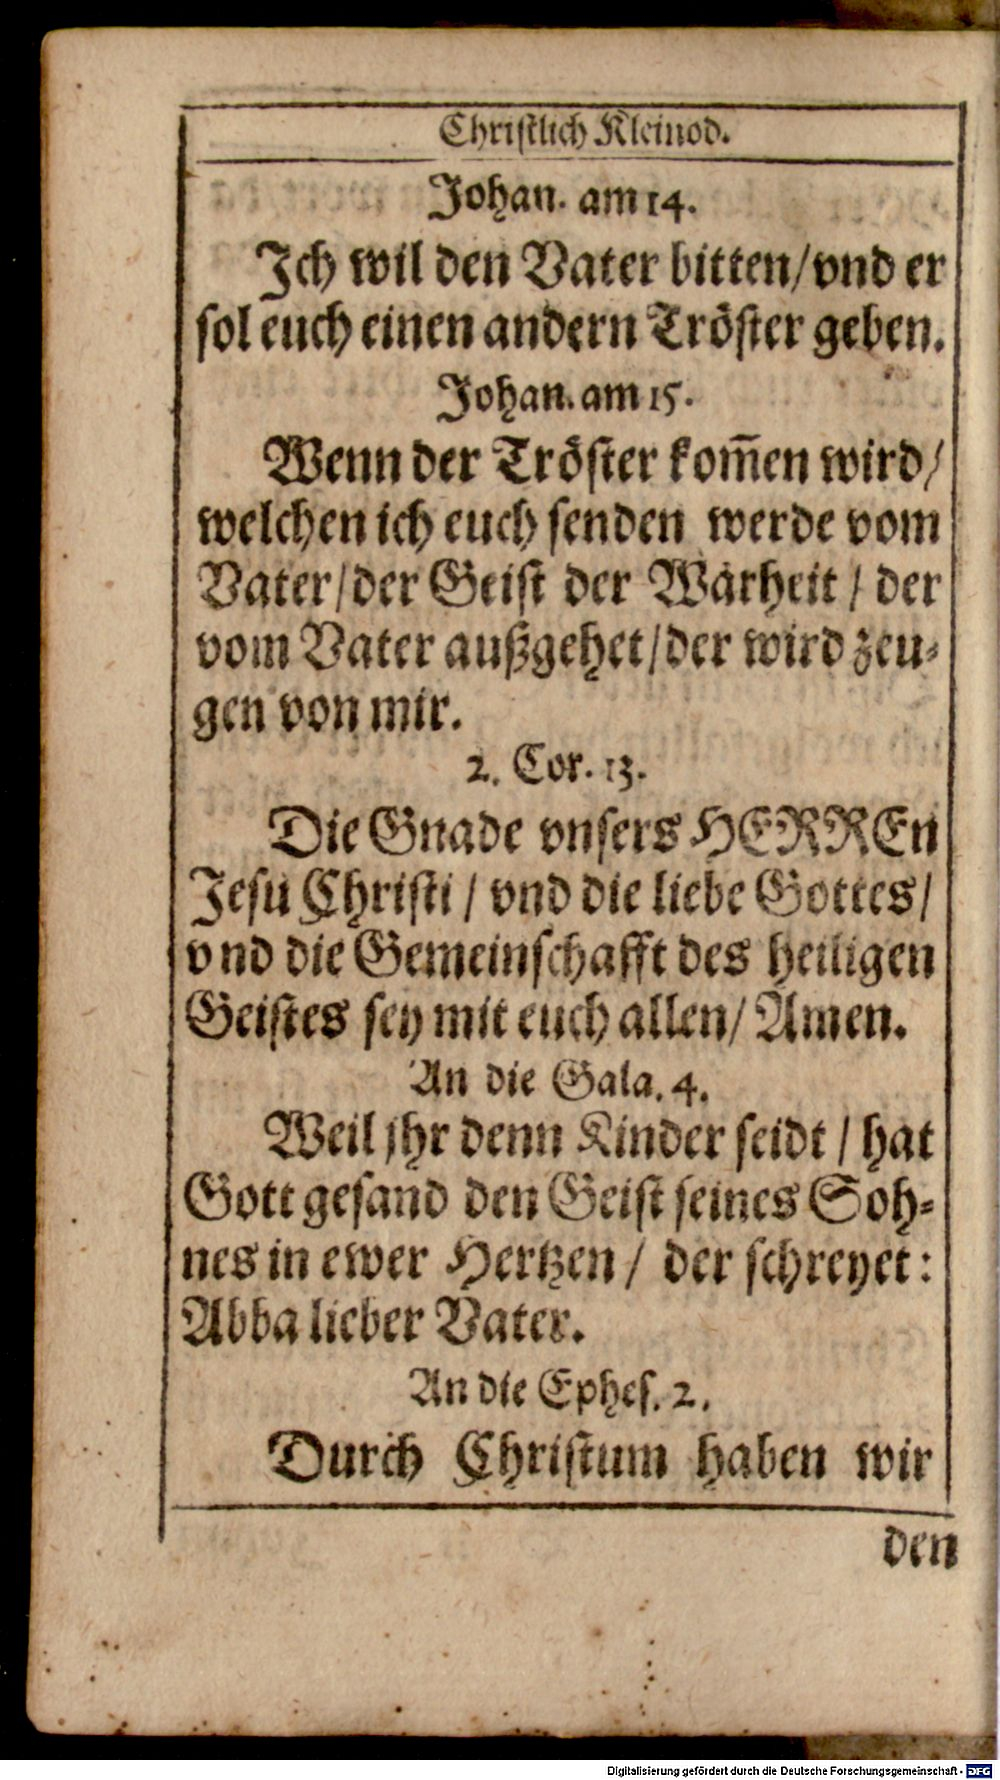 Christlich Kleinod.
Johan. am 14.
Ich wil den Vater bitten/vnd er
sol euch einen andern Tröster geben.
Johan. am 15.
Wenn der Tröster kom̄en wird/
welchen ich euch senden werde vom
Vater/der Geist der Warheit / der
vom Vater außgehet/der wird zeu-
gen von mir.
2. Cor. 13.
Die Gnade vnsers HERREn
Jesu Christi / vnd die liebe Gottes/
vnd die Gemeinschafft des heiligen
Geistes sey mit euch allen/ Amen.
An die Gala. 4.
Weil jhr denn Kinder seidt / hat
Gott gesand den Geist seines Soh-
nes in ewer Hertzen / der schreyet:
Abba lieber Vater.
An die Ephes. 2.
Durch Christum haben wir
den
Digitalisierung gefördert durch die Deutsche Forschungsgemeinschaft - DFG